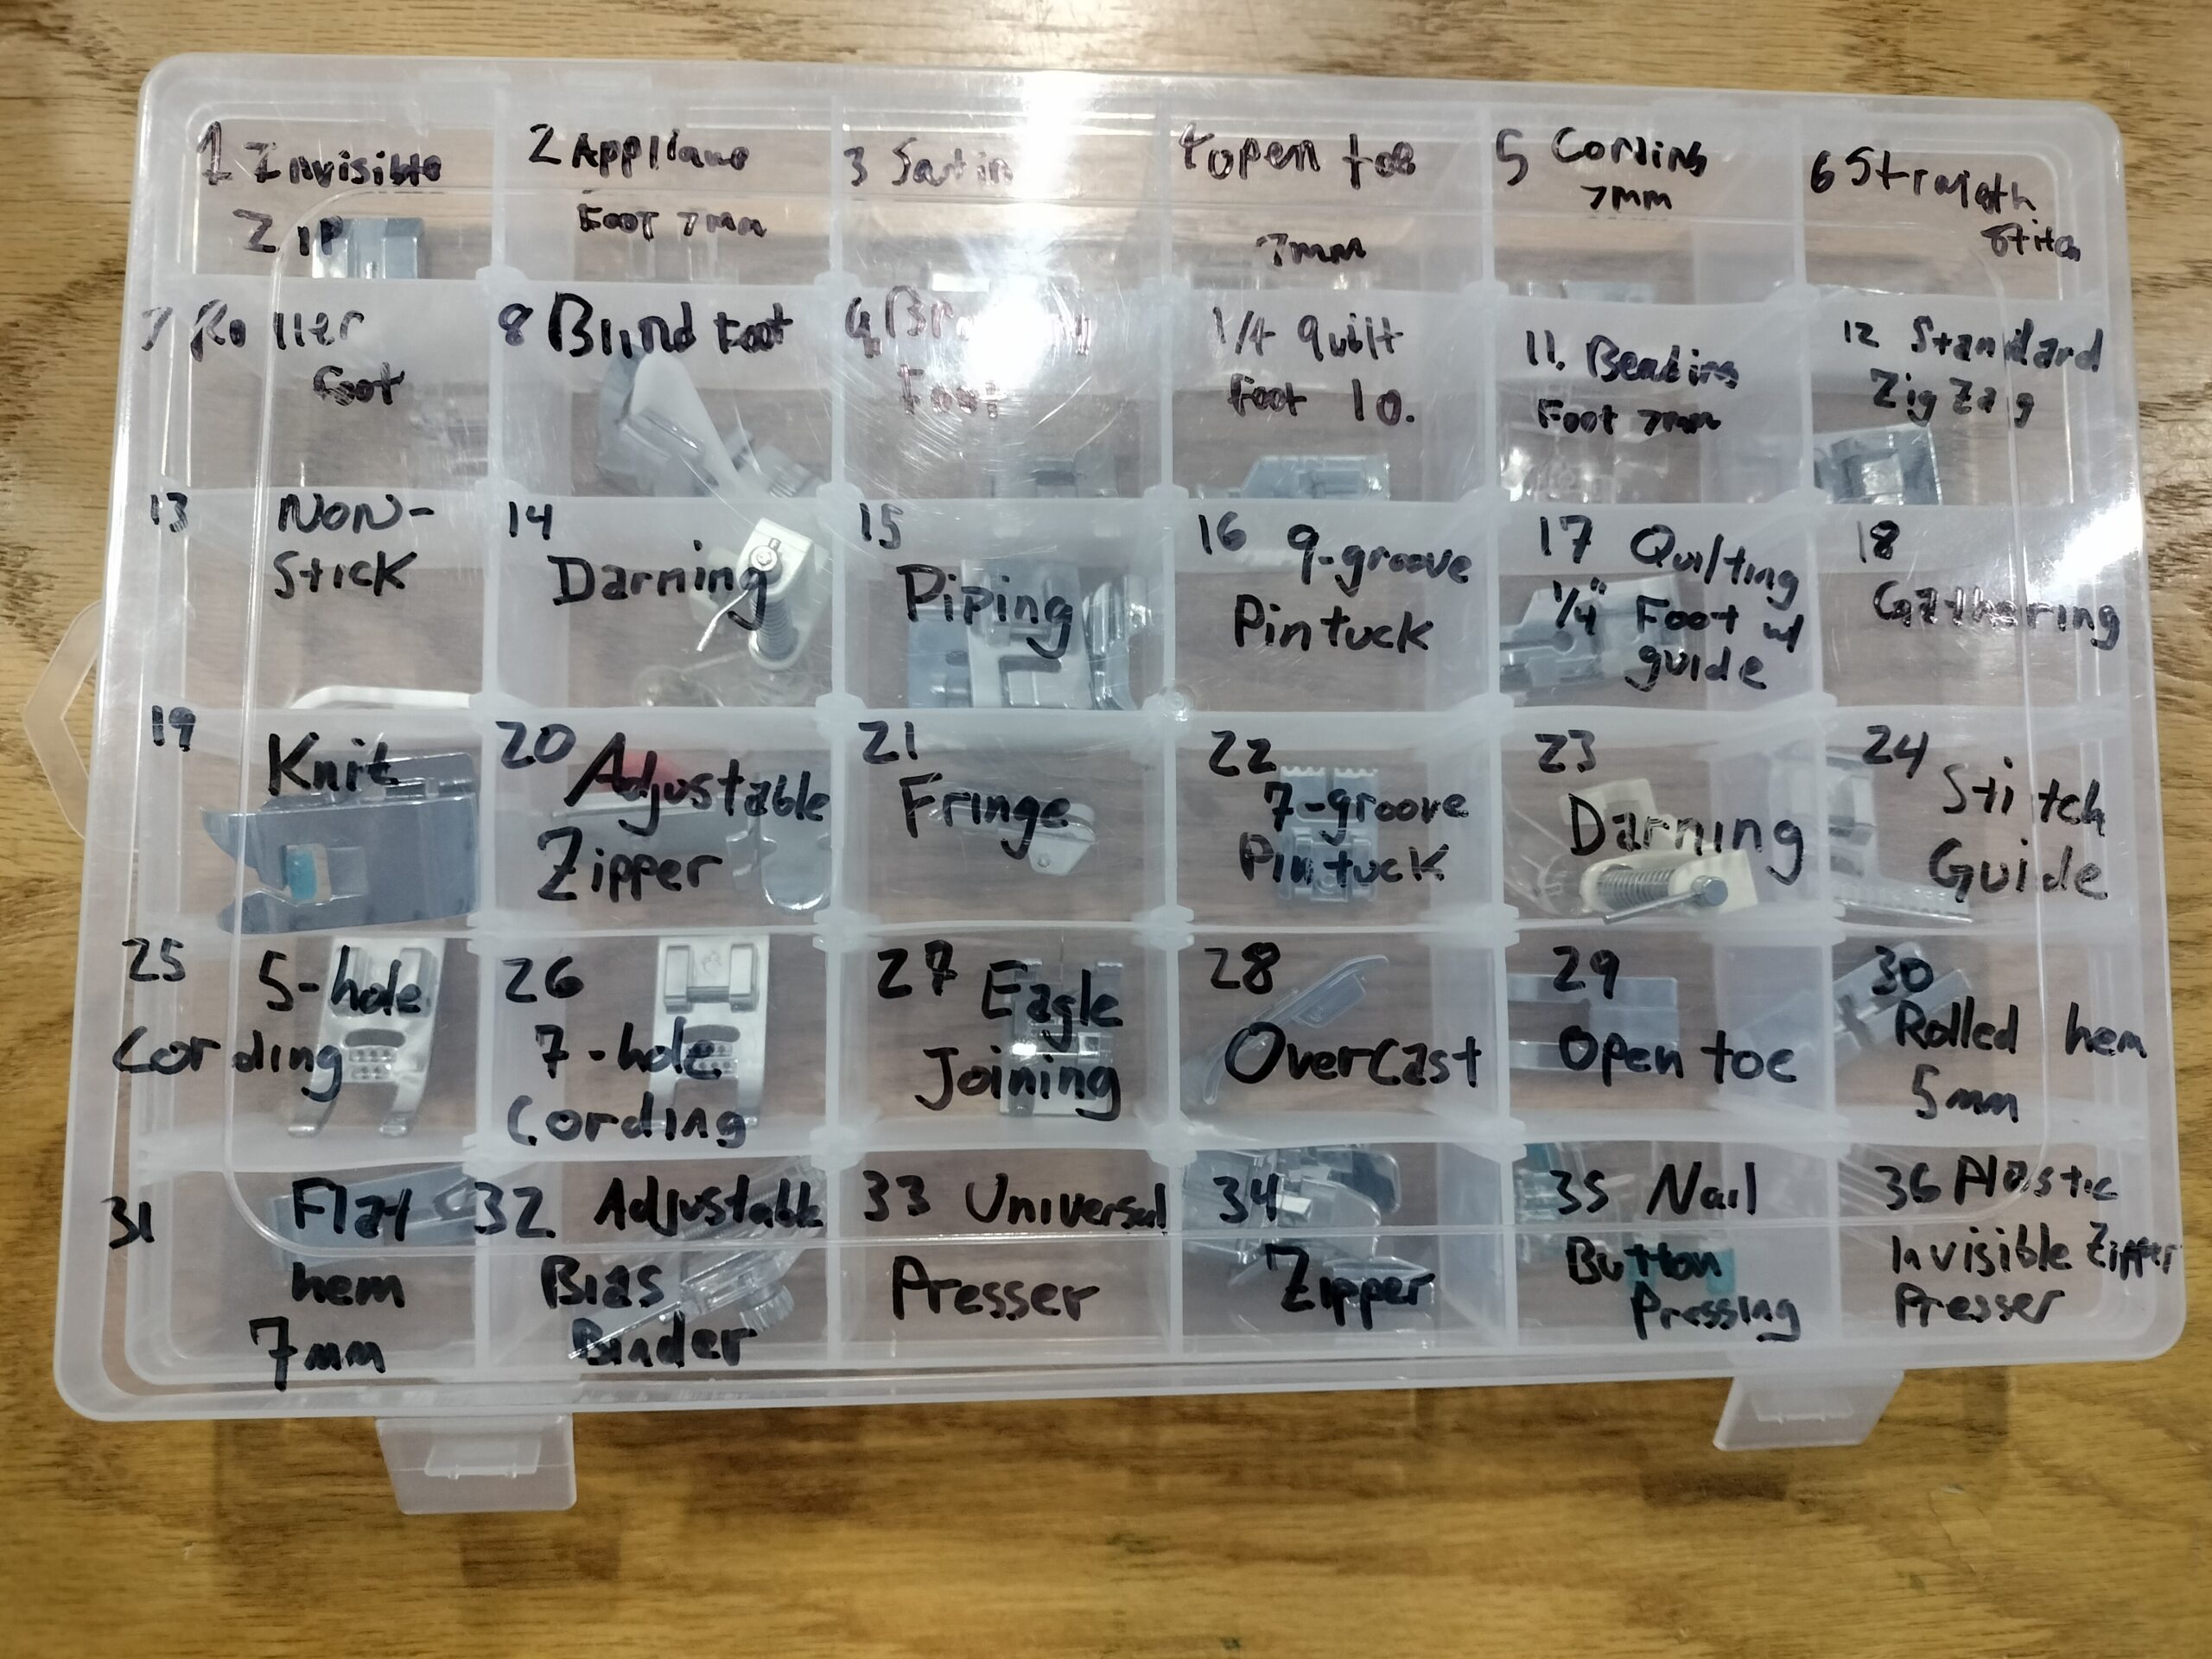 1 Invisible
ZIP
2 Applique
Foot 7mm
3 Satin
4 open toe
7mm
5 Cording
7mm
6 Straigth
Stitch
7 Roller
foot
8 Blind foot
9
Foot
1/4 quilt
foot 10.
11. Beading
Foot 7mm
12 Standard
Zig Zag
13 NON-
Stick
14
Darning
15
Piping
16 9-groove
Pintuck
17 Quilting
1/4" Foot w/
guide
18
Gathering
19
Knit
20 Adjustable
Zipper
21
Fringe
22
7-groove
Pintuck
23
Darning
24 Stitch
Guide
25 5-hole
Cording
26
7-hole
Cording
27 Eagle
Joining
28
Overcast
29
Open toe
30
Rolled hem
5mm
31 Flat
hem
7mm
32 Adjustable
Bias
Binder
33 Universal
Presser
34
Zipper
35 Nail
Button
Pressing
36 Plastic
Invisible Zipper
Presser